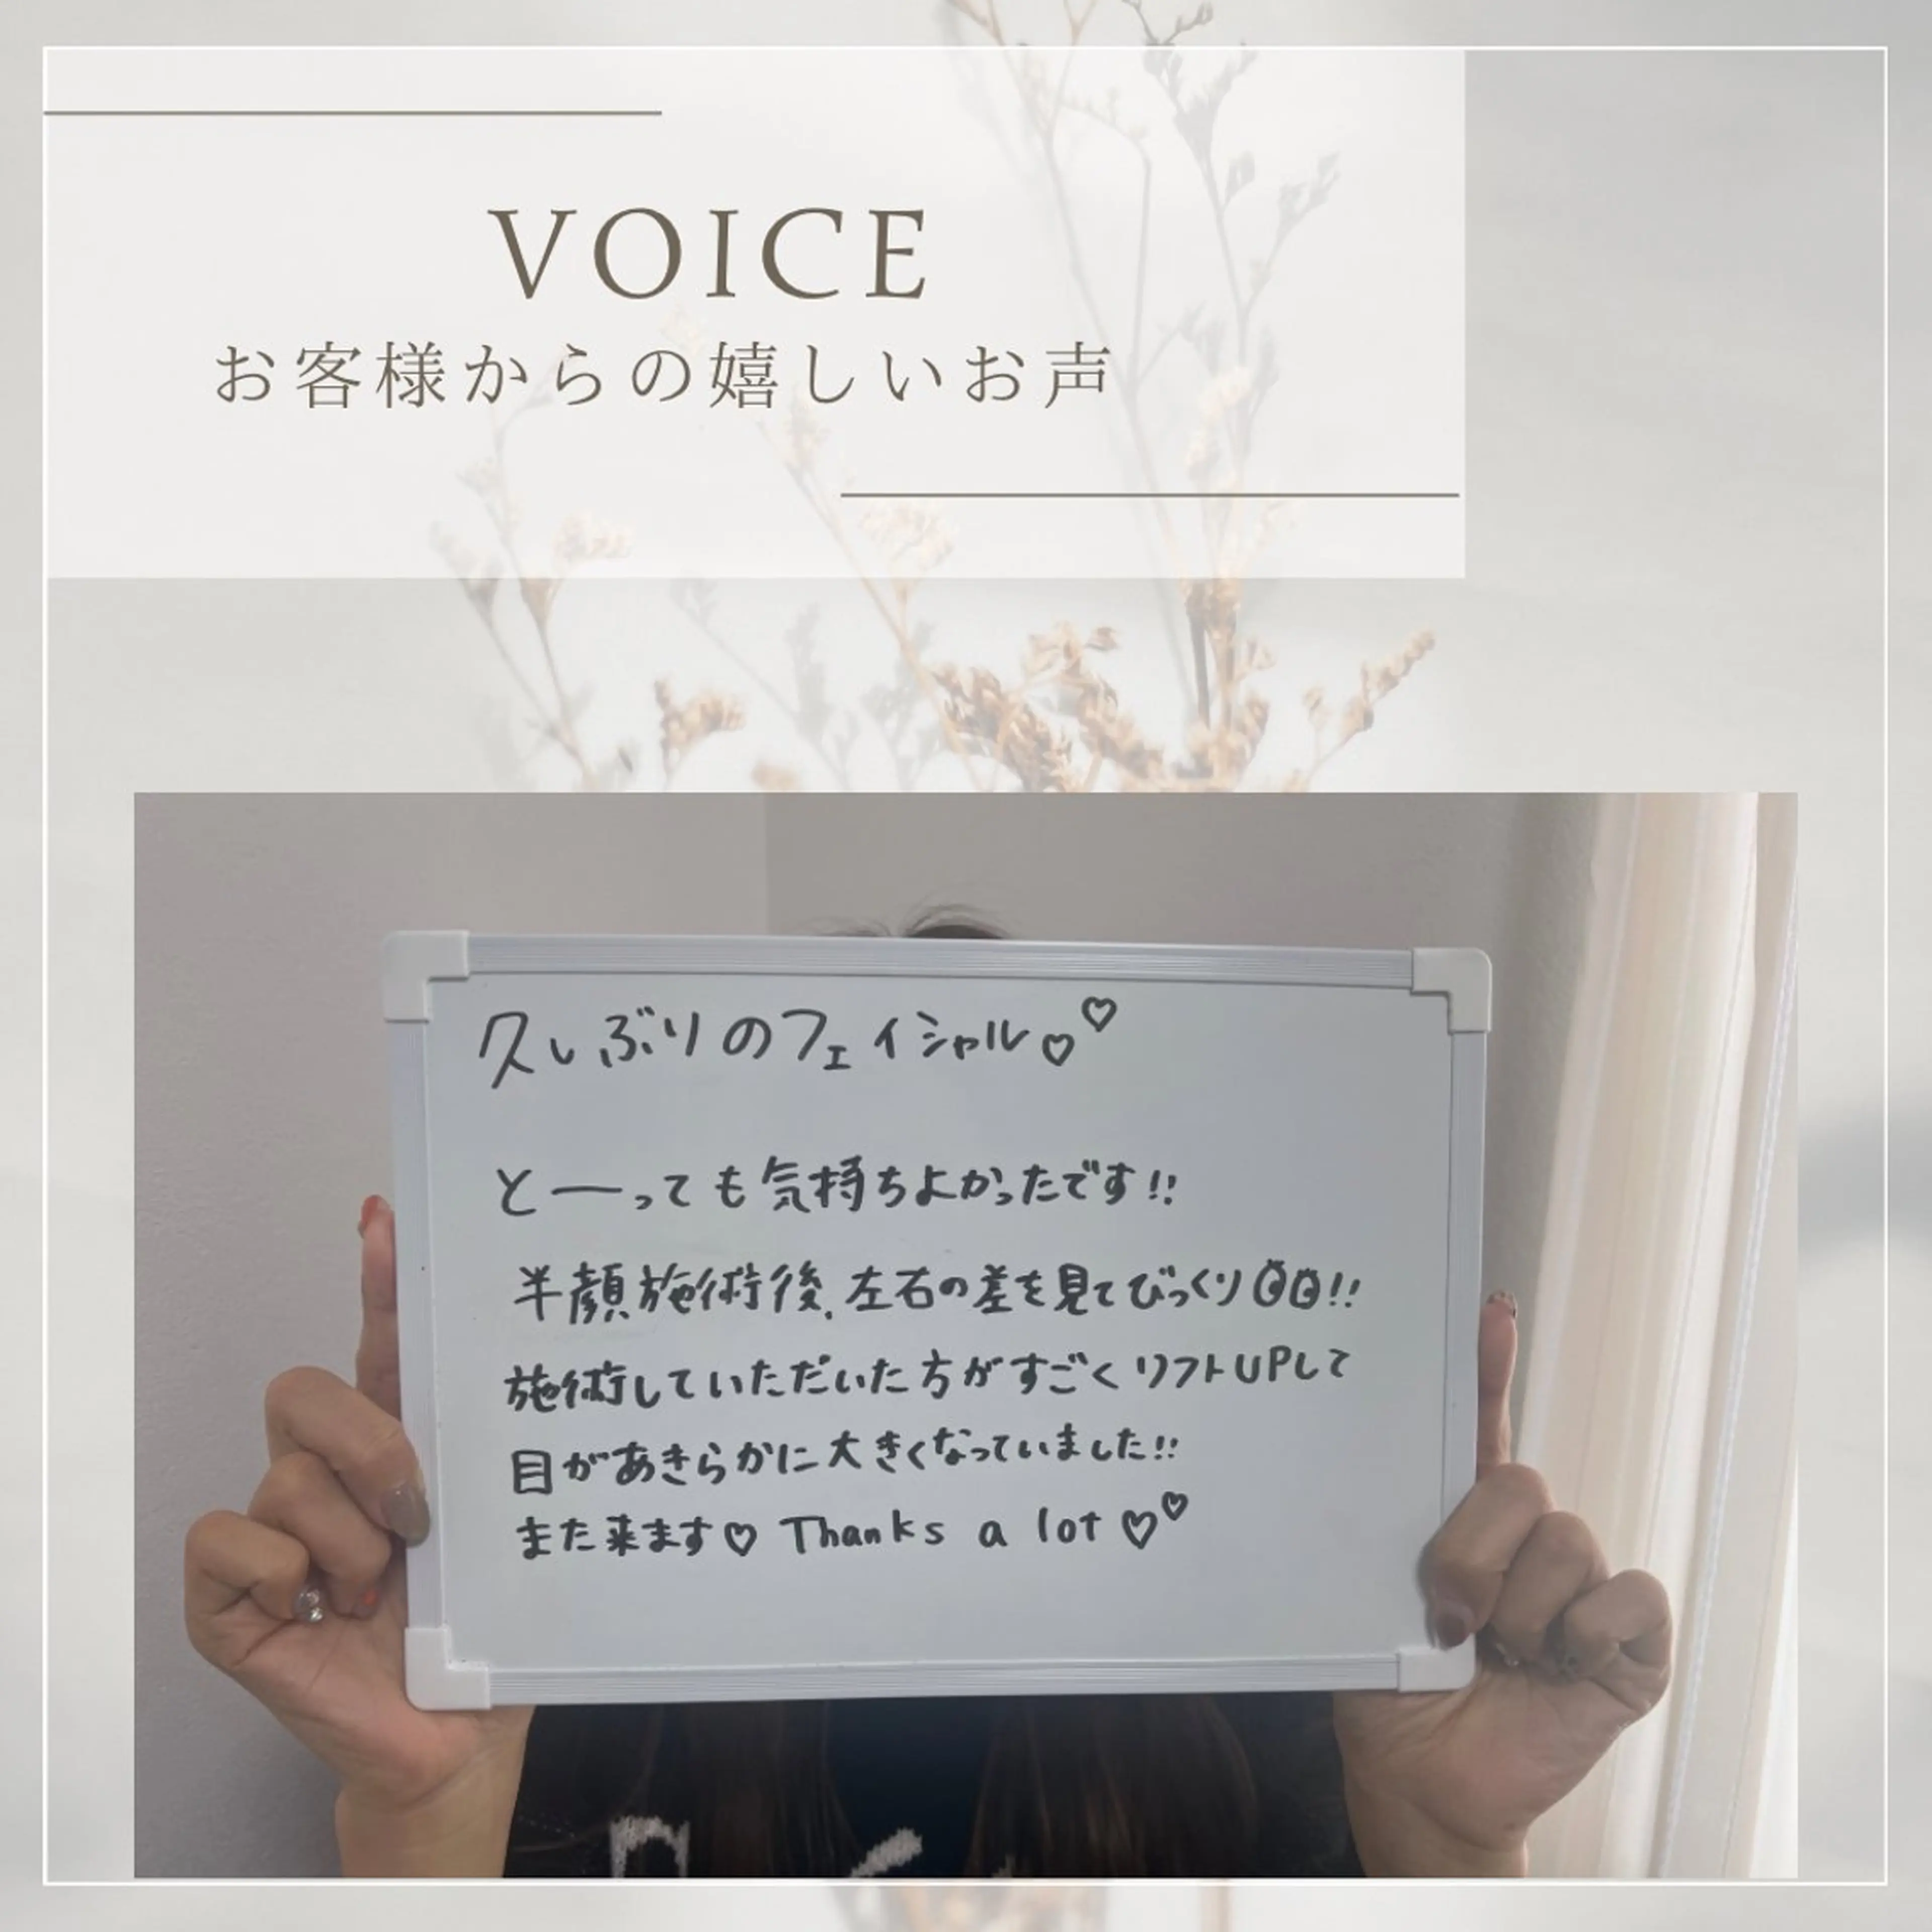 VOICE
お客様からの嬉しいお声
久しぶりのフェイシャル♡♡
とーっても気持ちよかったです!!
半顔施術後、左右の差を見てびっくり👀!!
施術していただいた方がすごくリフトUPして
目があきらかに大きくなっていました!!
また来ます♡ Thanks a lot ♡♡